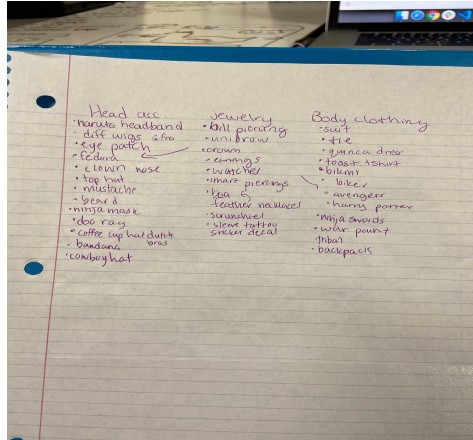 Head acc.
• naruto headband
• diff wigs afro
• eye patch
• fedora
• clown nose
• top hat
• mustache
• beard
• ninja mask
• doo rag
• coffee cup hat dutch bros
• bandana
• cowboy hat
jewelry
• bill piercing
• unibrow
• crown
• earrings
• watches
• boa
feather necklaces
• sleeve tattoo
sticker decal
Body clothing
• suit
• tie
• quincea dress
• toast tshirt
• bikini
• biker
• avengers
• harry potter
• ninja swords
• war paint
tribal
• backpack